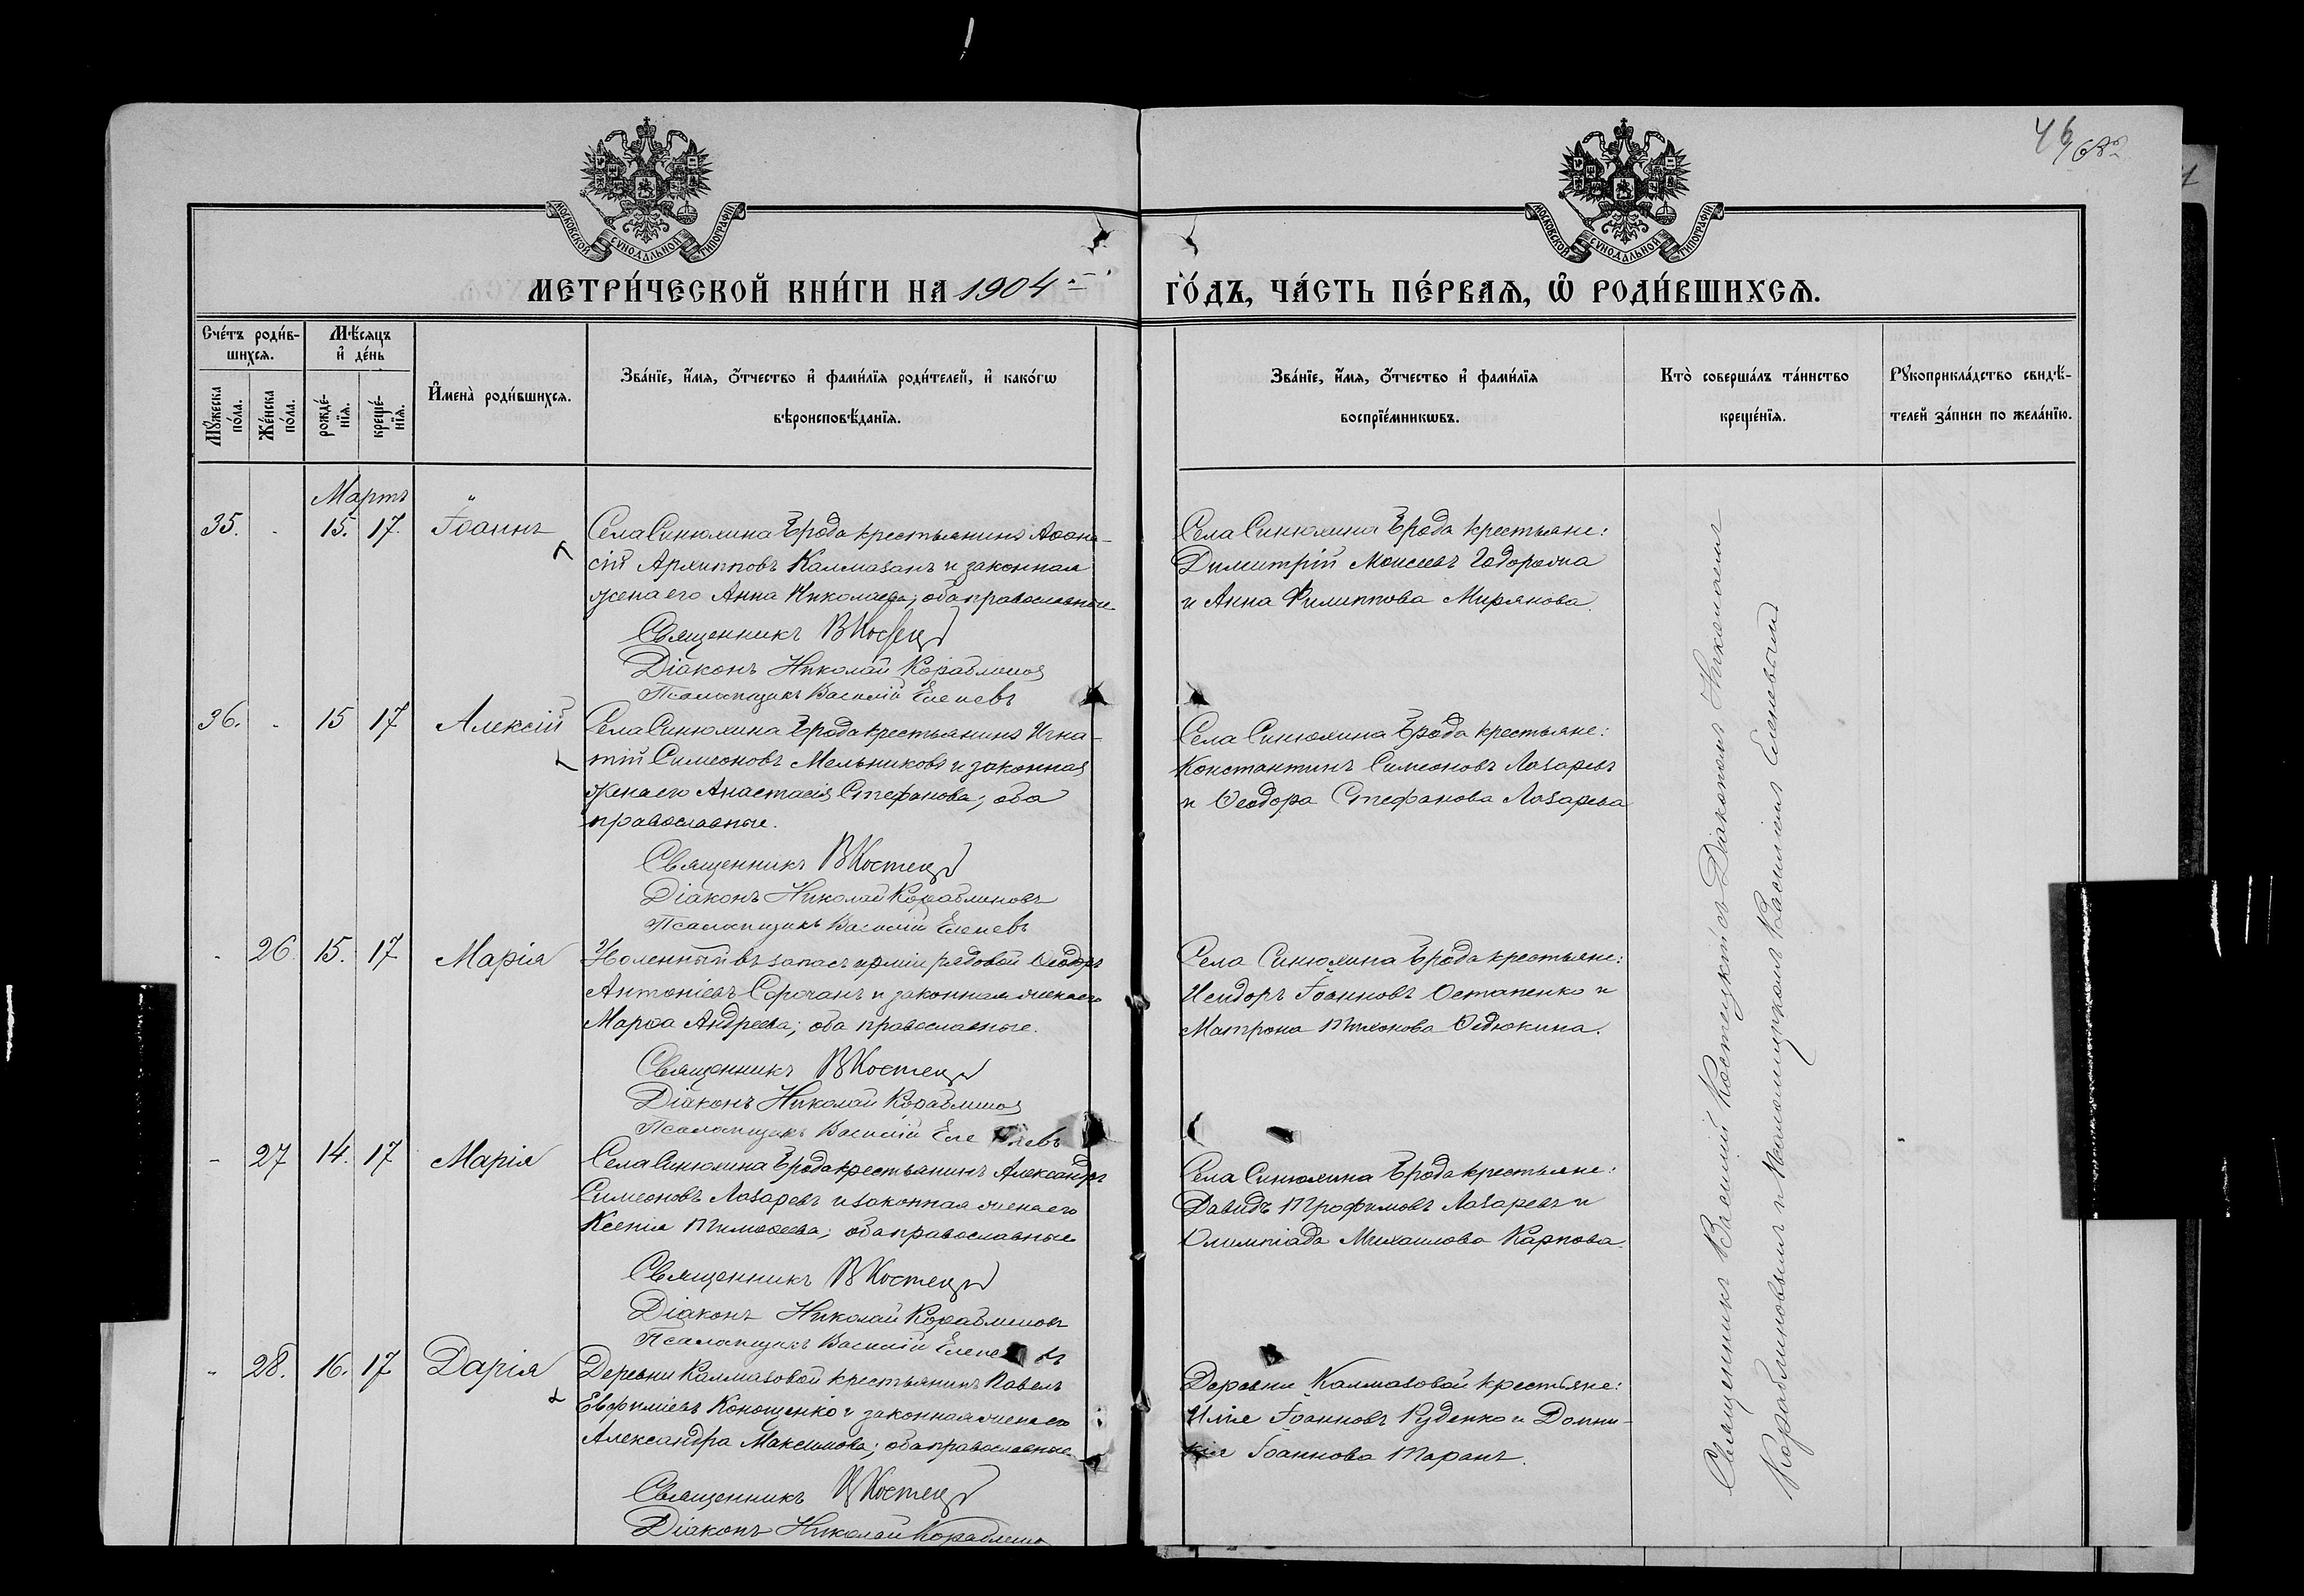 46
МОСКОВСКОЙ СУНОДАЛЬНОЙ ТИПОГРАФІИ
МОСКОВСКОЙ СУНОДАЛЬНОЙ ТИПОГРАФІИ
МЕТРИ́ЧЕСКОЙ КНИ́ГИ НА 1904
ГО́ДЪ, ЧА́СТЬ ПЕ́РВАѦ, Ѽ РОДИ́ВШИХСѦ.
Сче́тъ роди́в-
шихсѧ.
Мѣ́сѧцъ
и҆ де́нь
Мꙋ́жеска
по́ла.
Же́нска
по́ла.
рожде́-
нїѧ.
креще́-
нїѧ.
И҆мена̀ роди́вшихсѧ.
Зва́нїе, и҆́мѧ, ѻ҆́тчество и҆ фами́лїѧ роди́телей, и҆ како́гѡ
вѣроисповѣ́данїѧ.
Зва́нїе, и҆́мѧ, ѻ҆́тчество и҆ фами́лїѧ
воспрїе́мникѡвъ.
Кто̀ соверша́лъ та́инство
креще́нїѧ.
Рꙋкоприкла́дство свидѣ́-
телей за́писи по жела́нїю.
Мартъ
35. 15. 17. Іоаннъ
Села Синюхина Брода крестьянинъ Аѳана-
сій Архипповъ Калмазанъ и законная
жена его Анна Николаева; оба православные.
Священникъ В Костецк
Діаконъ Николай Кораблинов
Псаломщикъ Василій Еленевъ
Села Синюхина Брода крестьяне:
Димитрій Моисеевъ
и Анна Филиппова Мирянова.
36. 15 17 Алексій
Села Синюхина Брода крестьянинъ Игна-
тій Симеоновъ Мельниковъ и законная
жена его Анастасія Стефанова; оба
православные.
Священникъ В Костецк
Діаконъ Николай Кораблиновъ
Псаломщикъ Василій Еленевъ
Села Синюхина Брода крестьяне:
Константинъ Симеоновъ Лазаревъ
и Ѳеодора Стефанова Лазарева
26. 15. 17 Марія
въ запасъ арміи рядовой Ѳеодоръ
Антоніевъ Сорочанъ и законная жена его
Марѳа Андреева; оба православные.
Священникъ В Костецк
Діаконъ Николай Кораблинов
Псаломщикъ Василій Еленевъ
Села Синюхина Брода крестьяне:
Исидоръ Іоанновъ Остапенко и
Матрона Тихонова Ѳедюкина.
27 14. 17 Марія
Села Синюхина Брода крестьянинъ Александръ
Симеоновъ Лазаревъ и законная жена его
Ксенія Тимоѳеева; оба православные
Священникъ В Костецк
Діаконъ Николай Кораблиновъ
Псаломщикъ Василій Еленевъ
Села Синюхина Брода крестьяне:
Давидъ Трофимовъ Лазаревъ и
Олимпіада Михаилова Карпова.
28. 16. 17 Дарія
Деревни Калмазовой крестьянинъ Павелъ
Евфиміевъ Конощенко и законная жена его
Александра Максимова; оба православные.
Священникъ В Костецк
Діаконъ Николай Кораблинов
Деревни Калмазовой крестьяне:
Илія Іоанновъ Руденко и Домни-
кія Іоаннова Таранъ.
Священникъ Василій Костецкій съ Діакономъ Николаемъ
Кораблиновымъ и Псаломщикомъ Василіемъ Еленевымъ